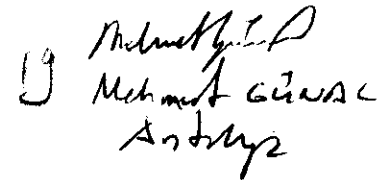 Mehmet GÜNAL
Antalya